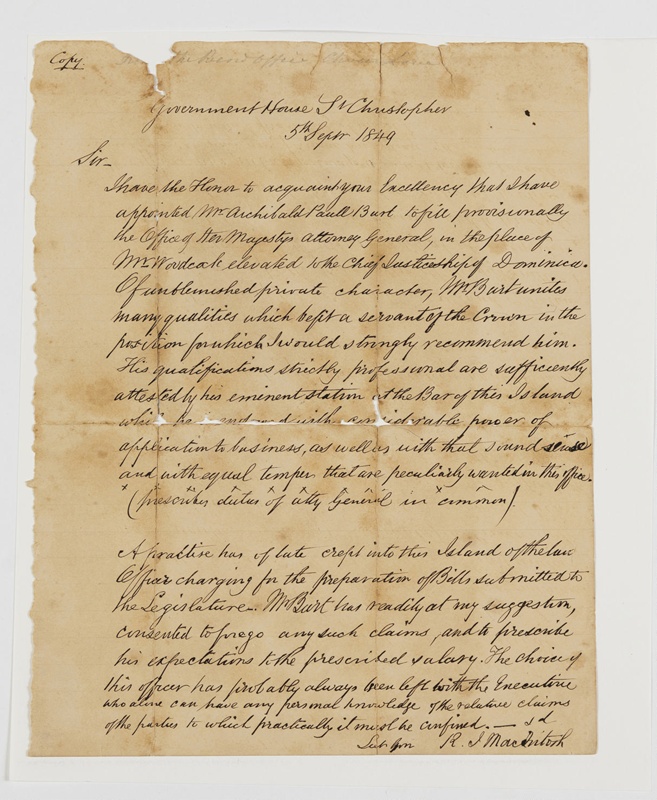 Copy.
Government House St Christopher
5th Septr 1849
Sir—
I have the Honor to acquaint your Excellency that I have
appointed Mr Archibald Paull Burt to fill provisionally
the Office of Her Majestys Attorney General, in the place of
Mr Woodcock, elevated to the Chief Justiceship of Dominica.
Of unblemished private character, Mr Burt unites
many qualities which befit a servant of the Crown in the
position for which I would strongly recommend him.
His qualifications strictly professional are sufficiently
attested by his eminent station at the Bar of this Island
with considerable power of
application to business, as well as with that sound sense
and with equal temper that are peculiarly wanted in this office.
(prescribes duties of Atty General in common).
A practise has of late crept into this Island of the law
Officers charging for the preparation of Bills submitted to
the Legislature. Mr Burt has readily at my suggestion,
consented to forego any such claims, and to prescribe
his expectations to the prescribed salary. The choice of
this officer has probably always been left with the Executive
who alone can have any personal knowledge of the relative claims
of the parties to which practically it must be confined. — sd
R. J MacIntosh